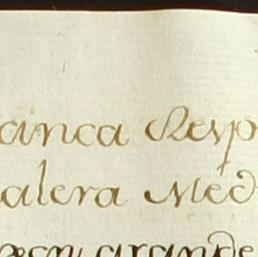 anca Resp
alera Med
grande